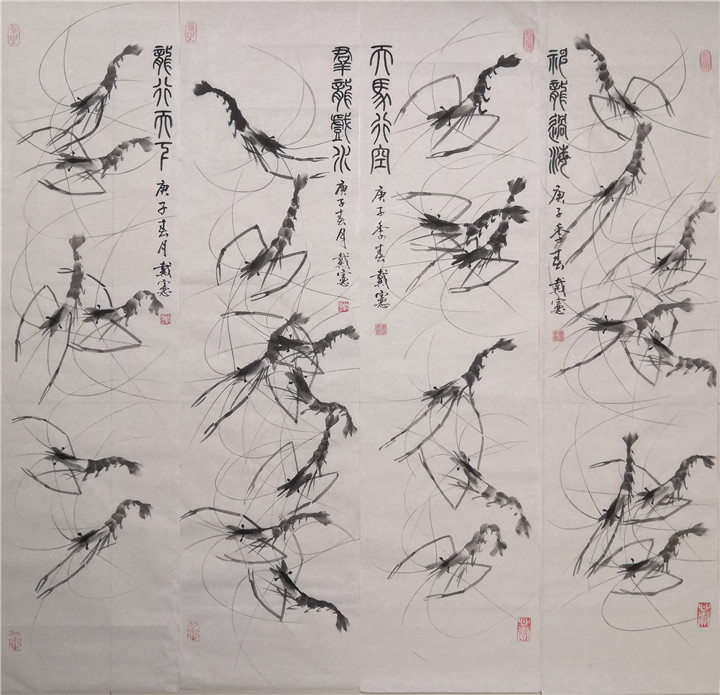 神龍過海
庚子季春戴憲
天馬行空
庚子季春戴憲
羣龍戲水
庚子春月戴憲
龍行天下
庚子春月戴憲